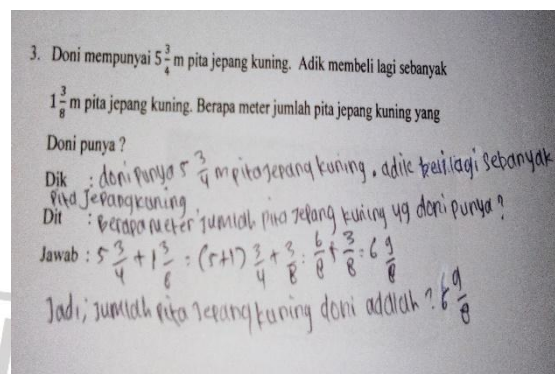 3. Doni mempunyai 5 3/4 m pita jepang kuning. Adik membeli lagi sebanyak
1 3/8 m pita jepang kuning. Berapa meter jumlah pita jepang kuning yang
Doni punya ?
Dik : doni punya 5 3/4 m pita jepang kuning, adik beli lagi sebanyak
pita Jepang kuning
Dit : Berapa meter jumlah pita jepang kuning yg doni punya ?
Jawab : 5 3/4 + 1 3/8 : (5+1) 3/4 + 3/8 : 6/8 + 3/8 : 6 9/8
Jadi, jumlah pita Jepang kuning doni adalah ? 6 9/8